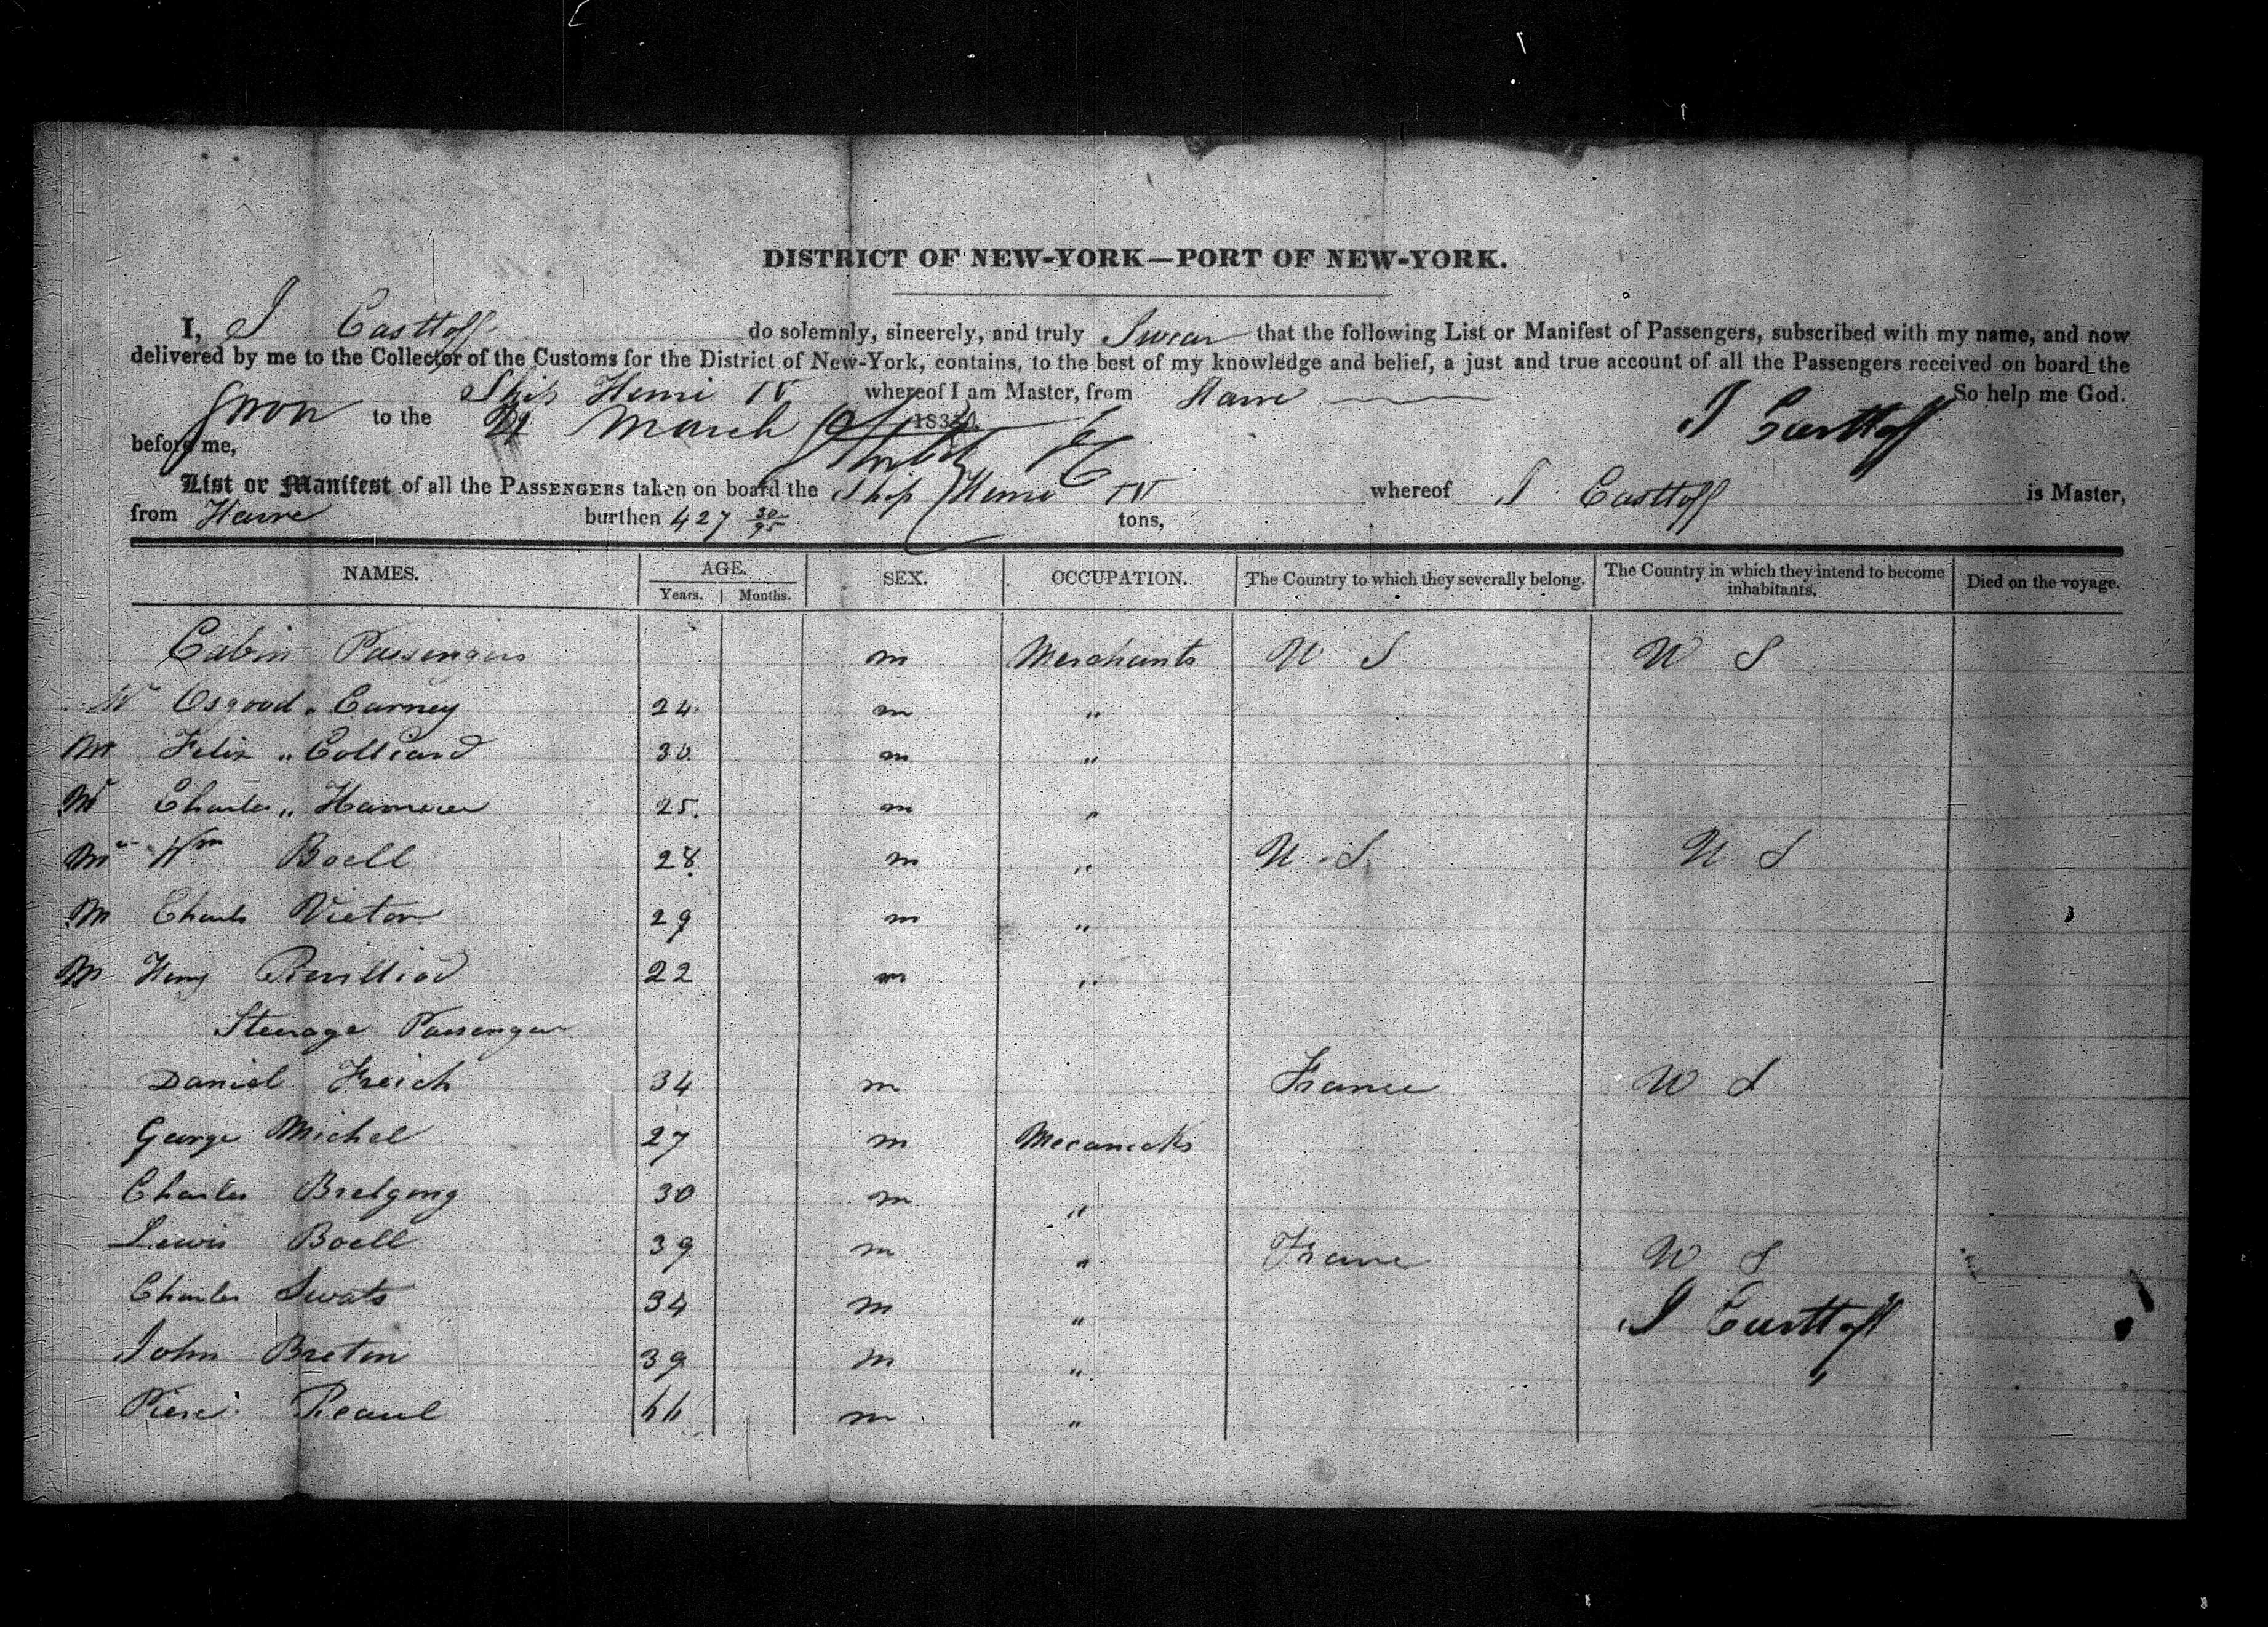 DISTRICT OF NEW-YORK—PORT OF NEW-YORK.
I, J Casttoff do solemnly, sincerely, and truly Swear that the following List or Manifest of Passengers, subscribed with my name, and now
delivered by me to the Collector of the Customs for the District of New-York, contains, to the best of my knowledge and belief, a just and true account of all the Passengers received on board the
Ship Henri IV whereof I am Master, from Havre So help me God.
Sworn to the March 183 J Casttoff
before me,
List or Manifest of all the PASSENGERS taken on board the Ship Henri IV whereof J Casttoff is Master,
from Havre burthen 427 30/95 tons,
NAMES. AGE. SEX. OCCUPATION. The Country to which they severally belong. The Country in which they intend to become inhabitants. Died on the voyage.
Years. Months.
Cabin Passengers m Merchants U S U S
Mr Osgood „ Carney 24 m „
Mr Felix „ Colliard 30 m „
Mr Charles „ 25 m „
Mr Wm Boell 28 m „ U S U S
Mr Charls Victor 29 m „
Mr Henry 22 m „
Steerage Passenger
Daniel Freich 34 m France U S
George Michel 27 m Mecanicks
Charles 30 m „
Lewis Boell 39 m „ France U S
Charles Swats 34 m „ J Casttoff
John Breton 39 m „
m „